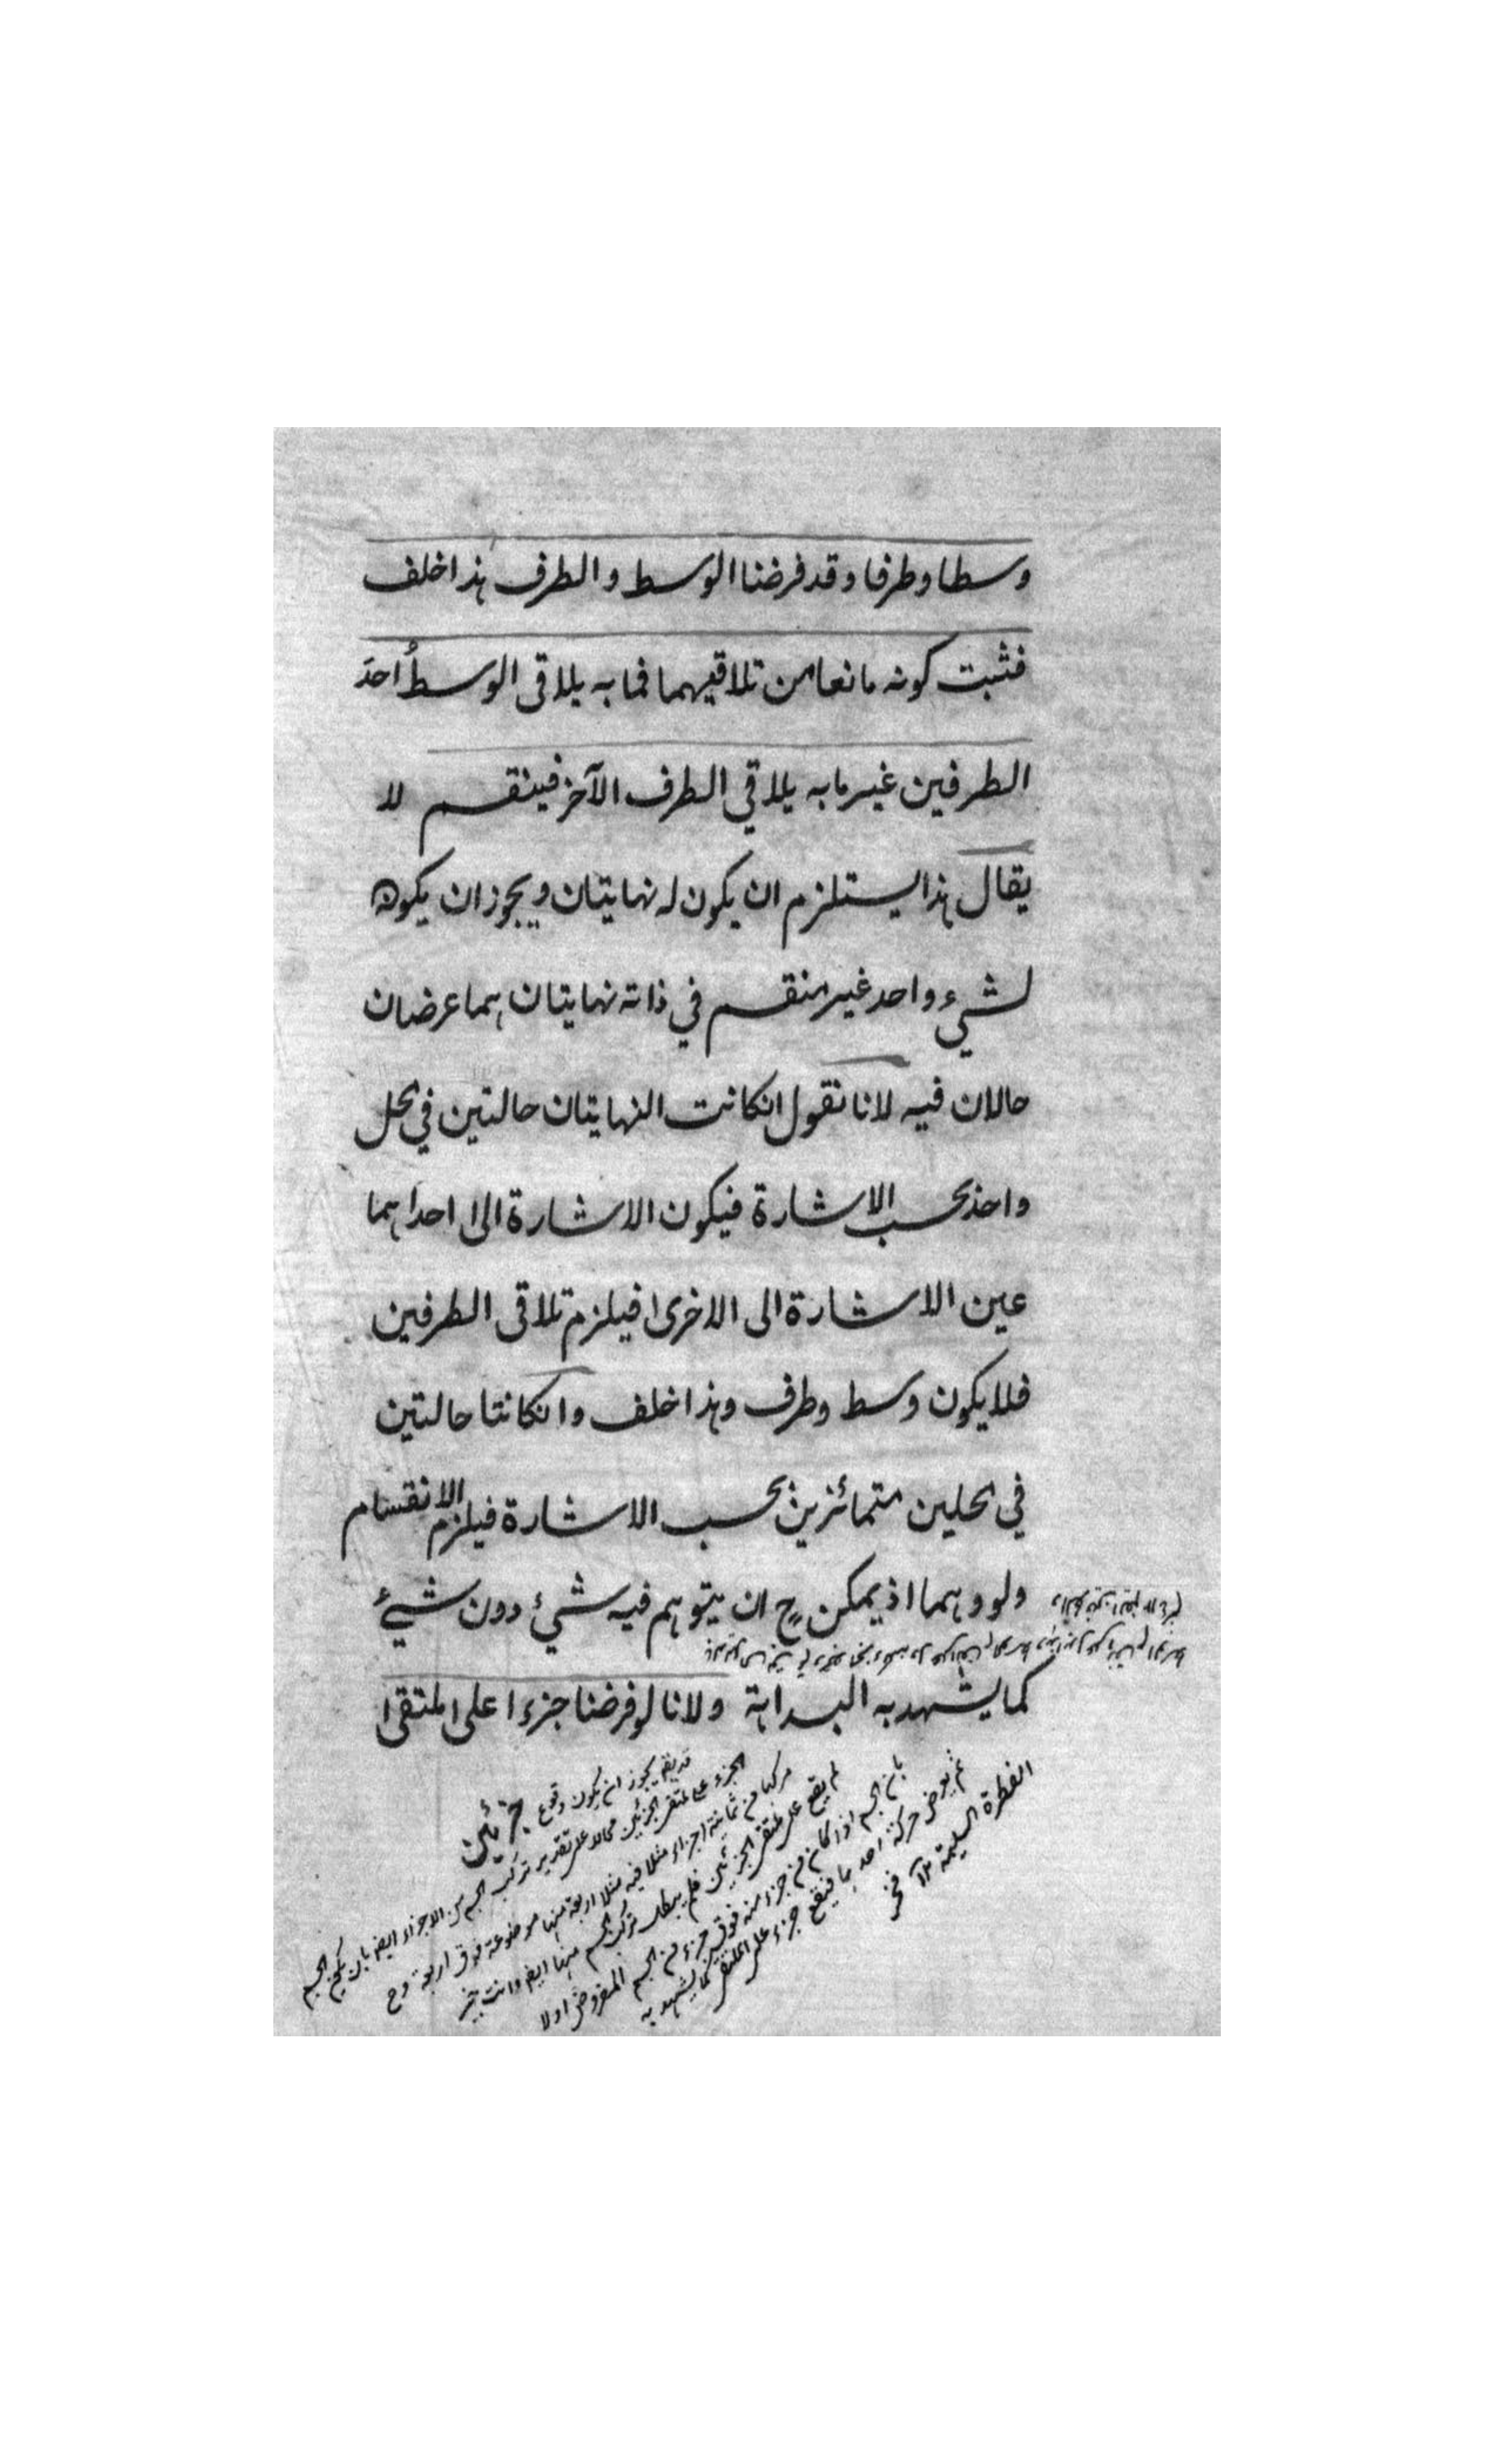 وسطا وطرفا وقد فرضنا الوسط والطرف هذا خلف
فثبت كونه مانعا من تلاقيهما فما به يلاقى الوسطُ احدَ
الطرفين غير ما به يلاقي الطرف الآخر فينقسم لا
يقال هذا يستلزم ان يكون له نهايتان ويجوز ان يكون
لشيء واحد غير منقسم في ذاته نهايتان هما عرضان
حالان فيه لانا نقول انكانت النهايتان حالتين في محل
واحد بحسب الاشارة فيكون الاشارة الى احداهما
عين الاشارة الى الاخرى فيلزم تلاقى الطرفين
فلا يكون وسط وطرف وهذا خلف وانكانتا حالتين
في محلين متمائزين بحسب الاشارة فيلزم الانقسام
ولو وهما اذ يمكن ح ان يتوهم فيه شيئ دون شيئ
كما يشهد به البداهة ولانا لو فرضنا جزءا على ملتقى
جزئين
قد يقع يجوز ان يكون وقوع
الجزء على ملتقى الجزئين محالا على تقدير تركب الجسم من الاجزاء ايضا بان يكون الجسم
مركبا من ثمانية اجزاء مثلا فيه مثلا اربعة منها موضوعة فوق اربعة وح
لم يقع على ملتقى الجزئين فلم يبطل تركب الجسم منها ايضا وانت خبير
بان الجسم اذا كان من جزء منه فوق جزء من الجسم المفروض اولا
ثم يعرض حركة احدهما فيقع جزء على الملتقى كما يشهد به
الفطرة السليمة ١٢